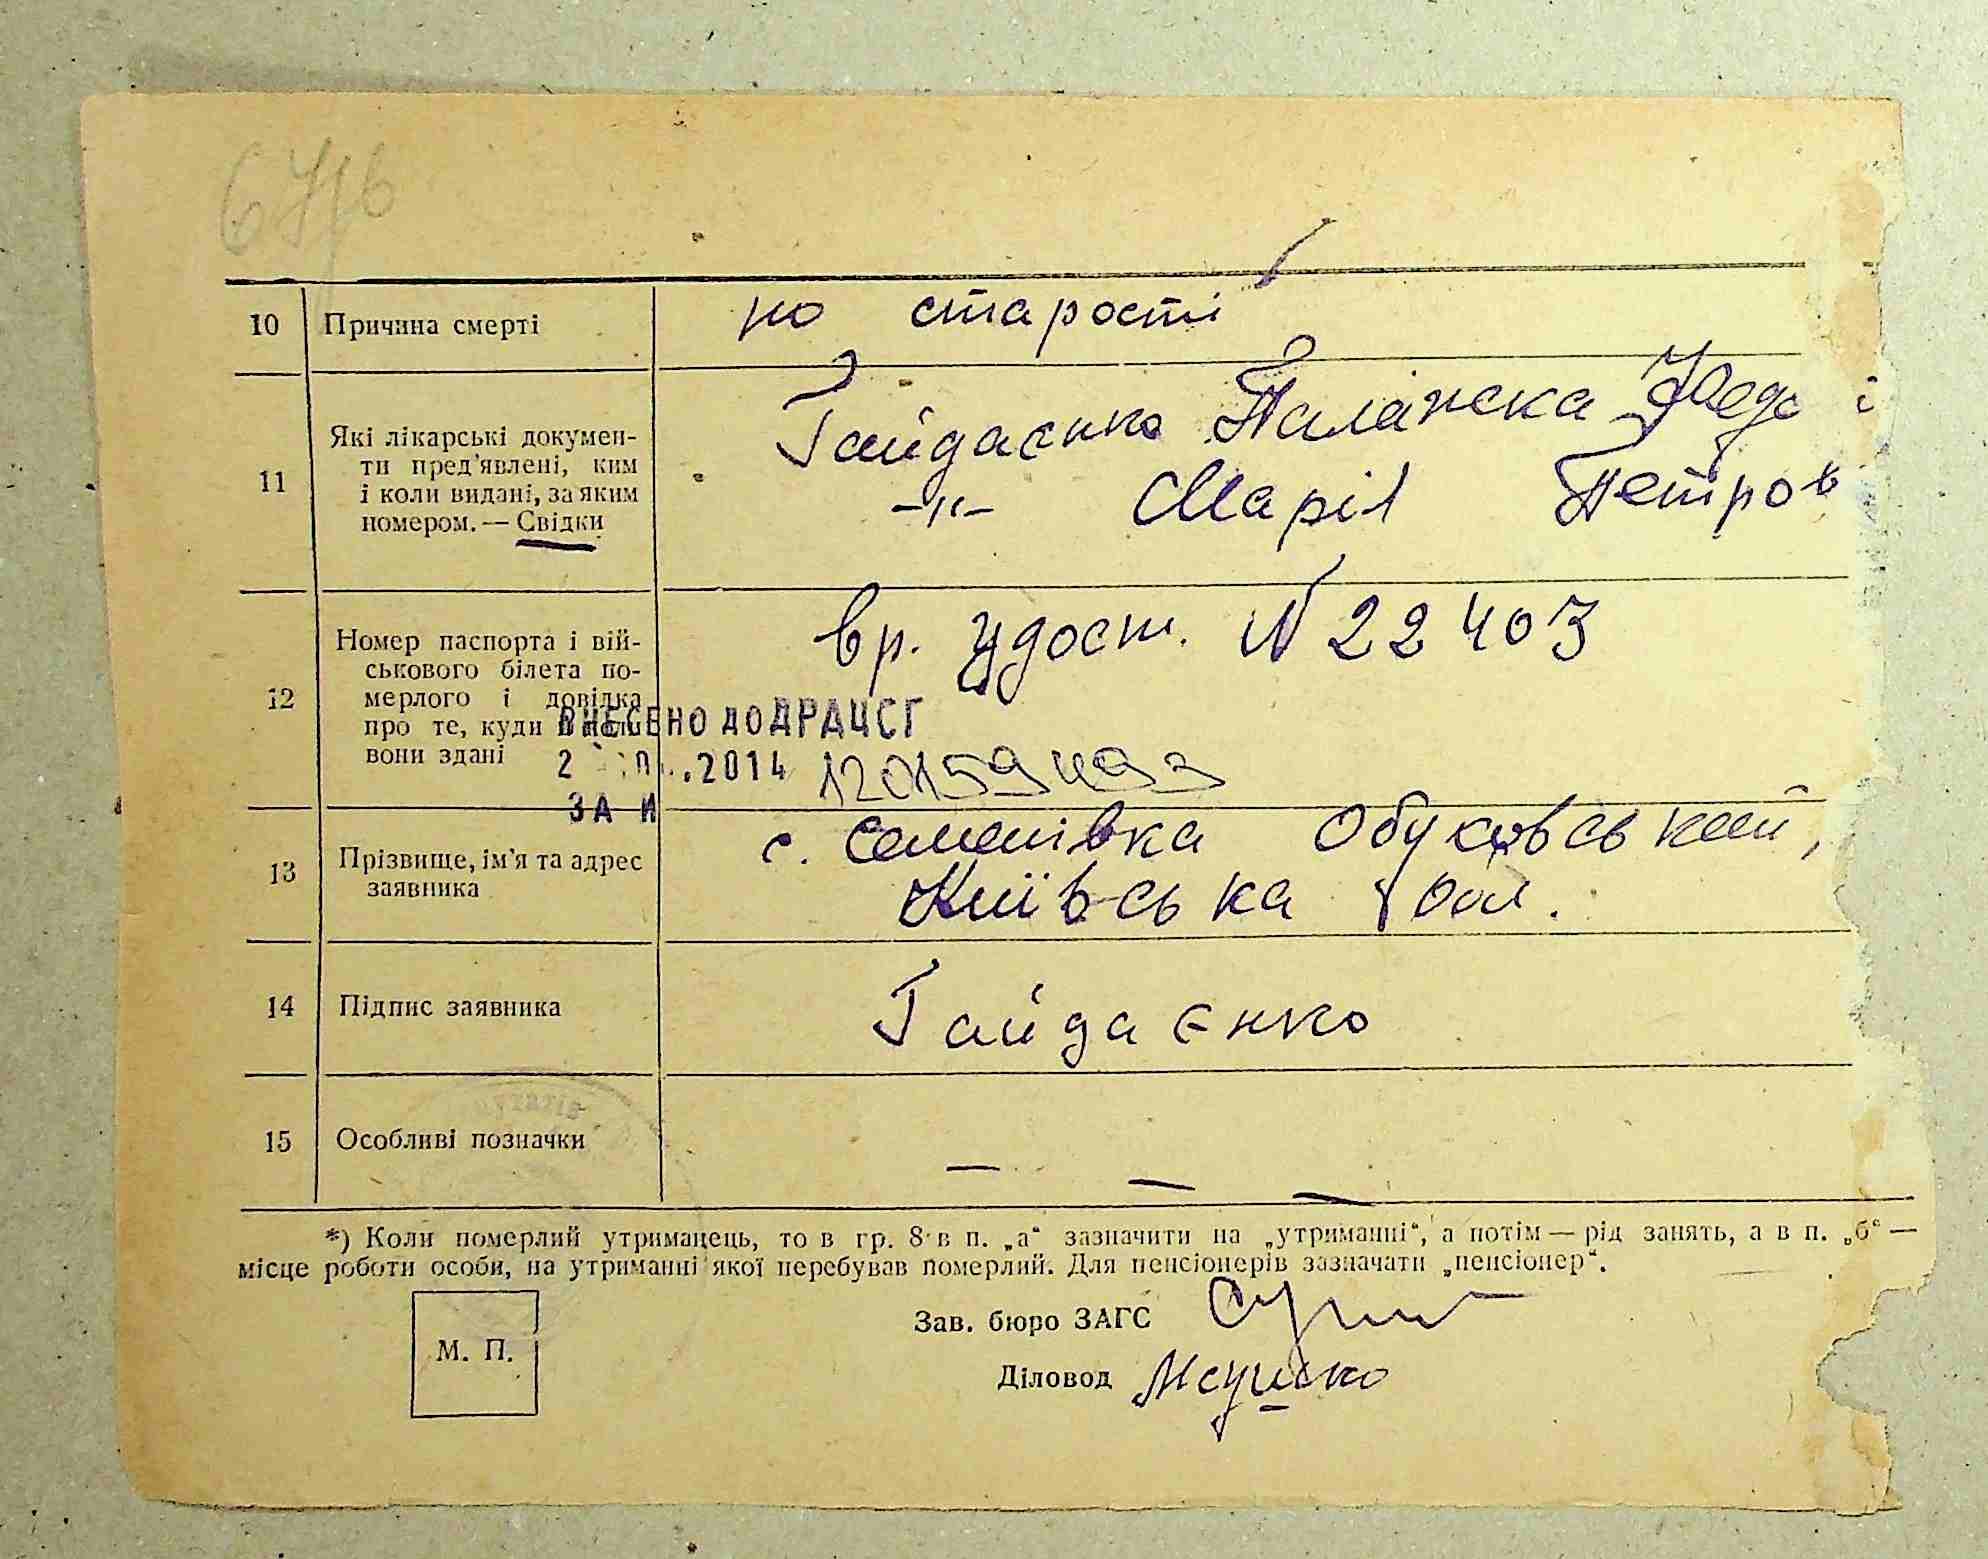 10 Причина смерті по старості
Гайдаєнко Палажка Федо
11 Які лікарські докумен-
ти пред'явлені, ким
і коли видані, за яким
номером. — Свідки
-"- Марія Петров
вр. удост. N 22403
12 Номер паспорта і вій-
ськового білета по-
мерлого і довідка
про те, куди
вони здані
ВНЕСЕНО до ДРАЦСГ
2 .2014 120159493
ЗА И
с. Семенівка Обуховський,
13 Прізвище, ім'я та адрес
заявника
Київська обл.
14 Підпис заявника Гайдаєнко
15 Особливі позначки — — —
*) Коли померлий утриманець, то в гр. 8 в п. „а“ зазначити на „утриманні“, а потім — рід занять, а в п. „б“ —
місце роботи особи, на утриманні якої перебував померлий. Для пенсіонерів зазначати „пенсіонер“.
М. П.
Зав. бюро ЗАГС
Діловод